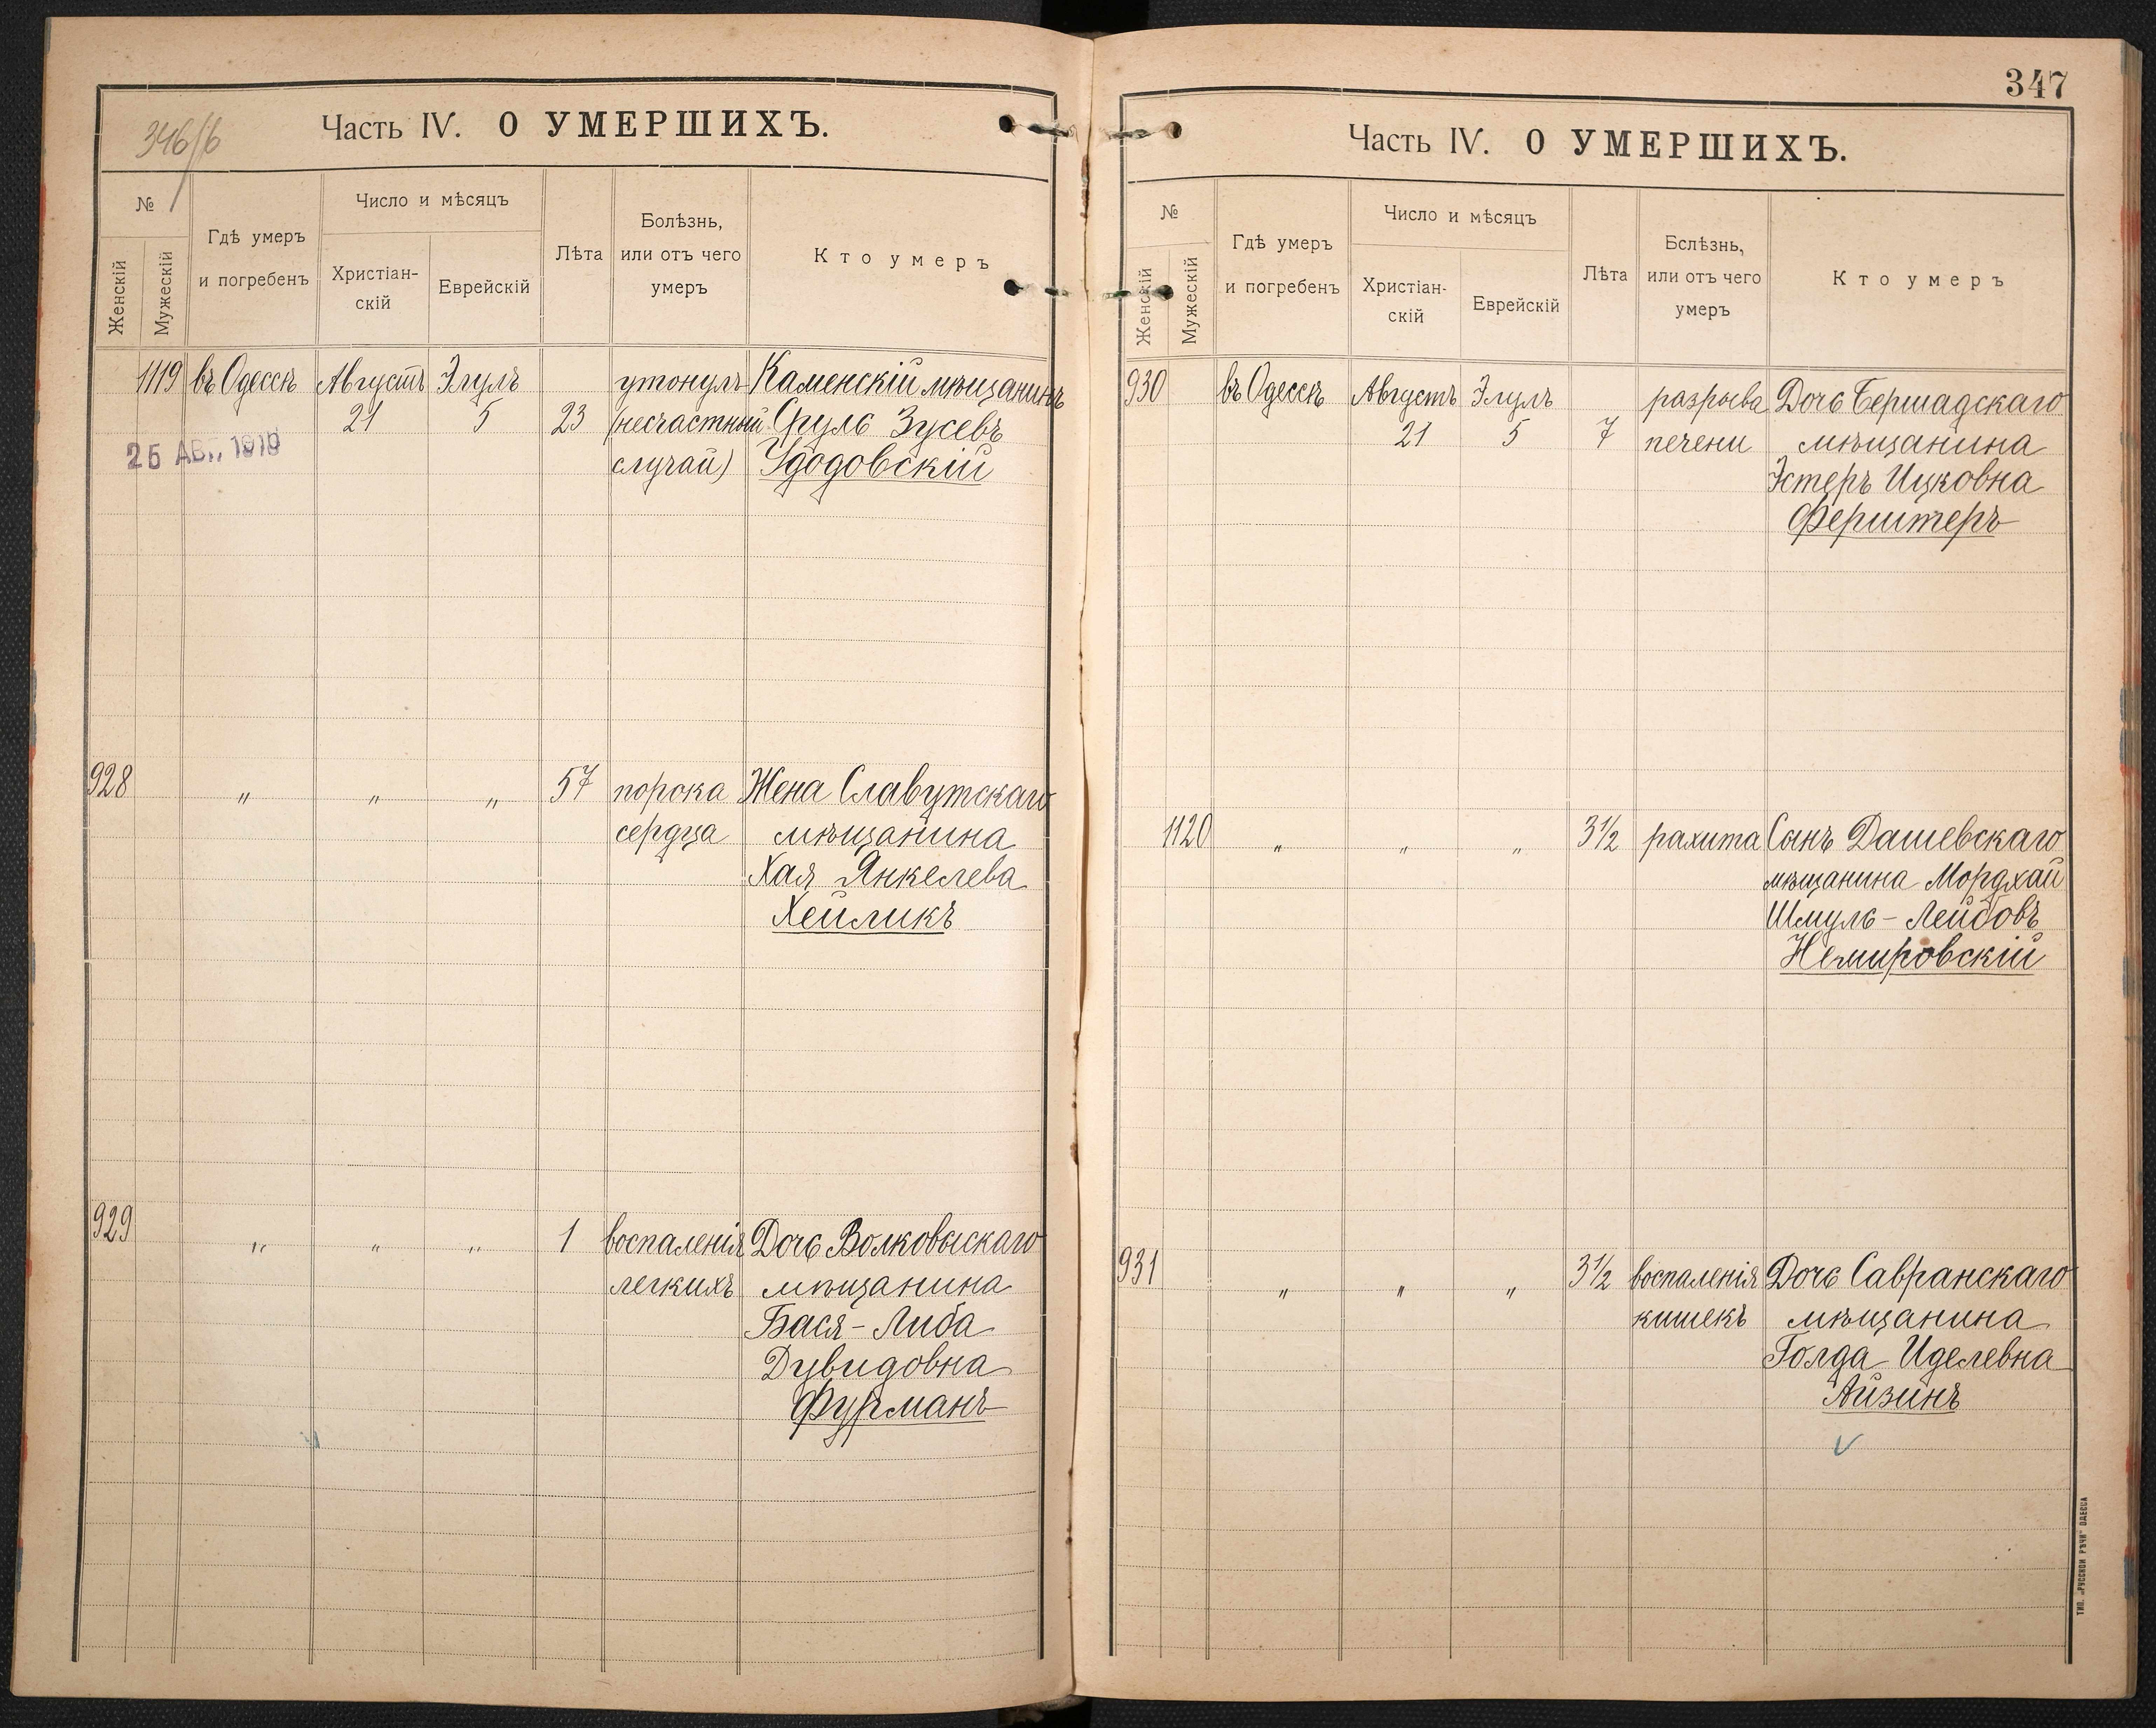 346/б
Часть IV. О УМЕРШИХЪ.
№
Женскій
Мужескій
Гдѣ умеръ
и погребенъ
Число и мѣсяцъ
Христіан-
скій
Еврейскій
Лѣта
Болѣзнь,
или отъ чего
умеръ
Кто умеръ
1119 въ Одессѣ Августъ Элулъ утонулъ Каменскій мѣщанинъ
21 5 23 (несчастный Сруль Зусевъ
25 АВГ. 1910
случай) Удодовскій
928 „ „ „ 57 порока Жена Славутскаго
сердца мѣщанина
Хая Янкелева
Хейликъ
929 „ „ „ 1 воспаленія Дочь Волковыскаго
легкихъ мѣщанина
Бася-Либа
Дувидовна
Фурманъ
347
Часть IV. О УМЕРШИХЪ.
№
Женскій
Мужескій
Гдѣ умеръ
и погребенъ
Число и мѣсяцъ
Христіан-
скій
Еврейскій
Лѣта
Бслѣзнь,
или отъ чего
умеръ
Кто умеръ
930 въ Одессѣ Августъ Элулъ разрыва Дочь Бершадскаго
21 5 7 печени мѣщанина
Эстеръ Ицковна
Ферштеръ
1120 „ „ „ 3½ рахита Сынъ Дашевскаго
мѣщанина Мордхай
Шмуль-Лейбовъ
Немировскій
931 „ „ „ 3½ воспаленія Дочь Савранскаго
кишекъ мѣщанина
Голда Иделевна
Айзинъ
ТИП. „РУССКОЙ РѢЧИ" ОДЕССА